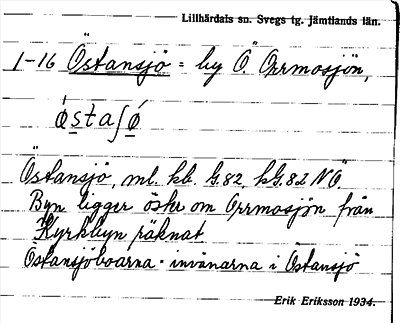 Lillhärdals sn. Svegs tg. Jämtlands län.
1-16 Östansjö = by Ö. Orrmosjön,
Östansjö, ml. kb. G.82, kG.82 NÖ.
Byn ligger öster om Orrmosjön från
Kyrkbyn räknat.
Östansjöboarna - invånarna i Östansjö
Erik Eriksson 1934.